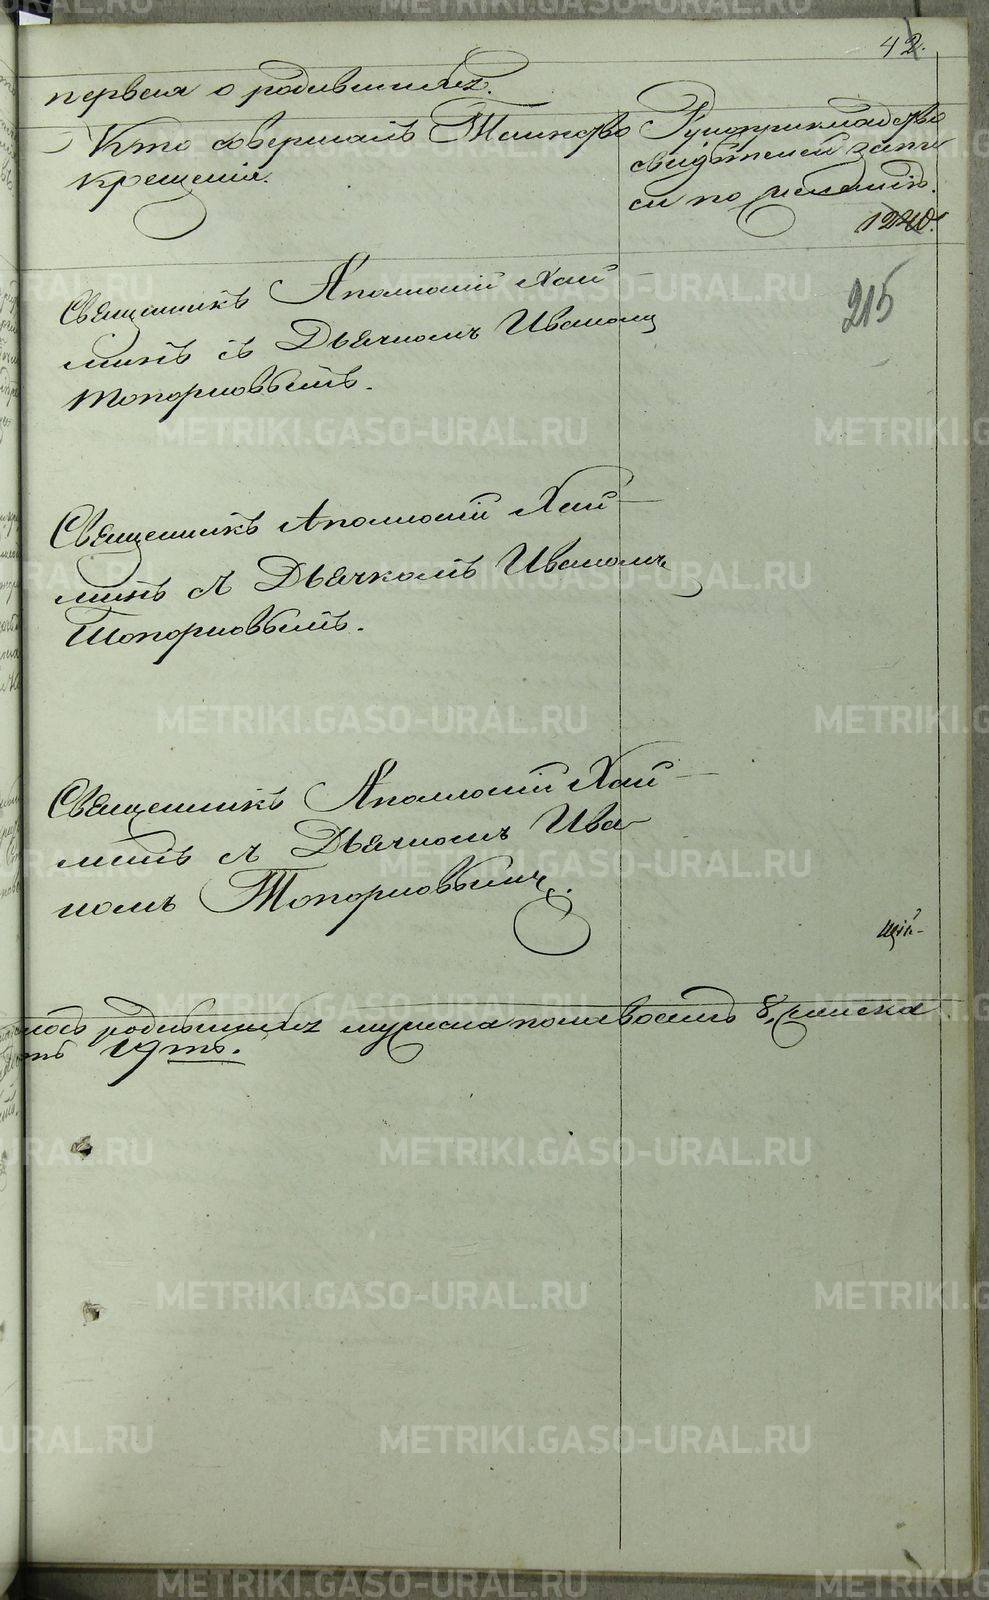 42.
первая о родившихся.
Кто совершалъ Таинство
крещенія.
Рукоприкладство
свидѣтелей запи
си по желанію.
1240.
215
Священникъ Аполлоній Хай
минъ съ Дьячкомъ Иваномъ
Топорковымъ.
Священникъ Аполлоній Хай
минъ съ Дьячкомъ Иваномъ
Топорковымъ.
Священникъ Аполлоній Хай
минъ съ Дьячкомъ Ива
номъ Топорковымъ.
щій
лось родившихся мужеска пола восемь 8, женска
19ть.
METRIKI.GASO-URAL.RU